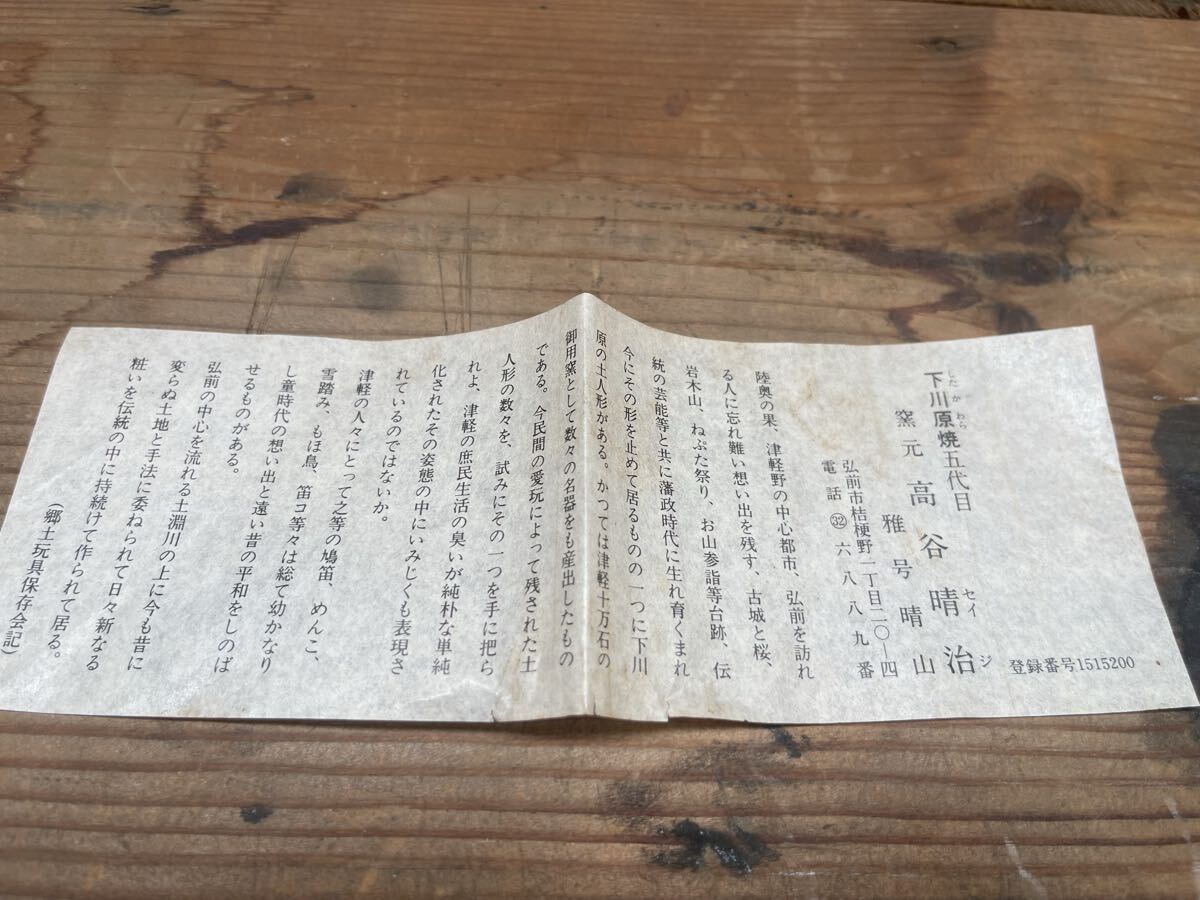 下川原焼五代目
したかわら
窯元 高谷晴治
セイジ
雅号 晴山
弘前市桔梗野一丁目二〇—四
電話㉜六八八九番
登録番号1515200
陸奥の果、津軽野の中心都市、弘前を訪れ
る人に忘れ難い想い出を残す、古城と桜、
岩木山、ねぷた祭り、お山参詣等台跡、伝
統の芸能等と共に藩政時代に生れ育くまれ
今にその形を止めて居るものの一つに下川
原の土人形がある。かつては津軽十万石の
御用窯として数々の名器をも産出したもの
である。今民間の愛玩によって残された土
人形の数々を、試みにその一つを手に把ら
れよ、津軽の庶民生活の臭いが純朴な単純
化されたその姿態の中にいみじくも表現さ
れているのではないか。
津軽の人々にとって之等の鳩笛、めんこ、
雪踏み、もほ鳥、笛コ等々は総て幼かなり
し童時代の想い出と遠い昔の平和をしのば
せるものがある。
弘前の中心を流れる土淵川の上に今も昔に
変らぬ土地と手法に委ねられて日々新なる
粧いを伝統の中に持続けて作られて居る。
(郷土玩具保存会記)